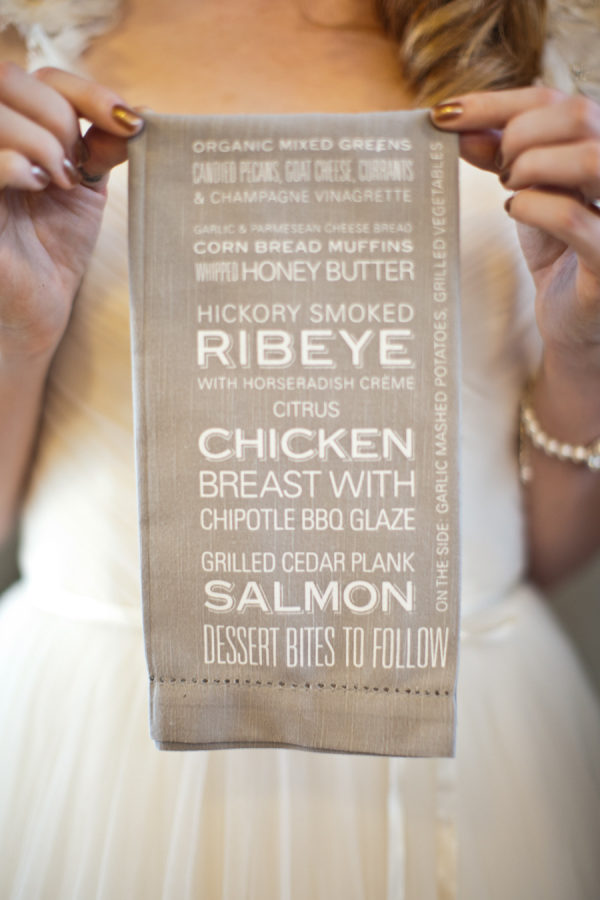 ORGANIC MIXED GREENS
CANDIED PECANS, GOAT CHEESE, CURRANTS
& CHAMPAGNE VINAGRETTE
GARLIC & PARMESEAN CHEESE BREAD
CORN BREAD MUFFINS
WHIPPED HONEY BUTTER
HICKORY SMOKED
RIBEYE
WITH HORSERADISH CRÈME
CITRUS
CHICKEN
BREAST WITH
CHIPOTLE BBQ GLAZE
GRILLED CEDAR PLANK
SALMON
DESSERT BITES TO FOLLOW
ON THE SIDE: GARLIC MASHED POTATOES, GRILLED VEGETABLES